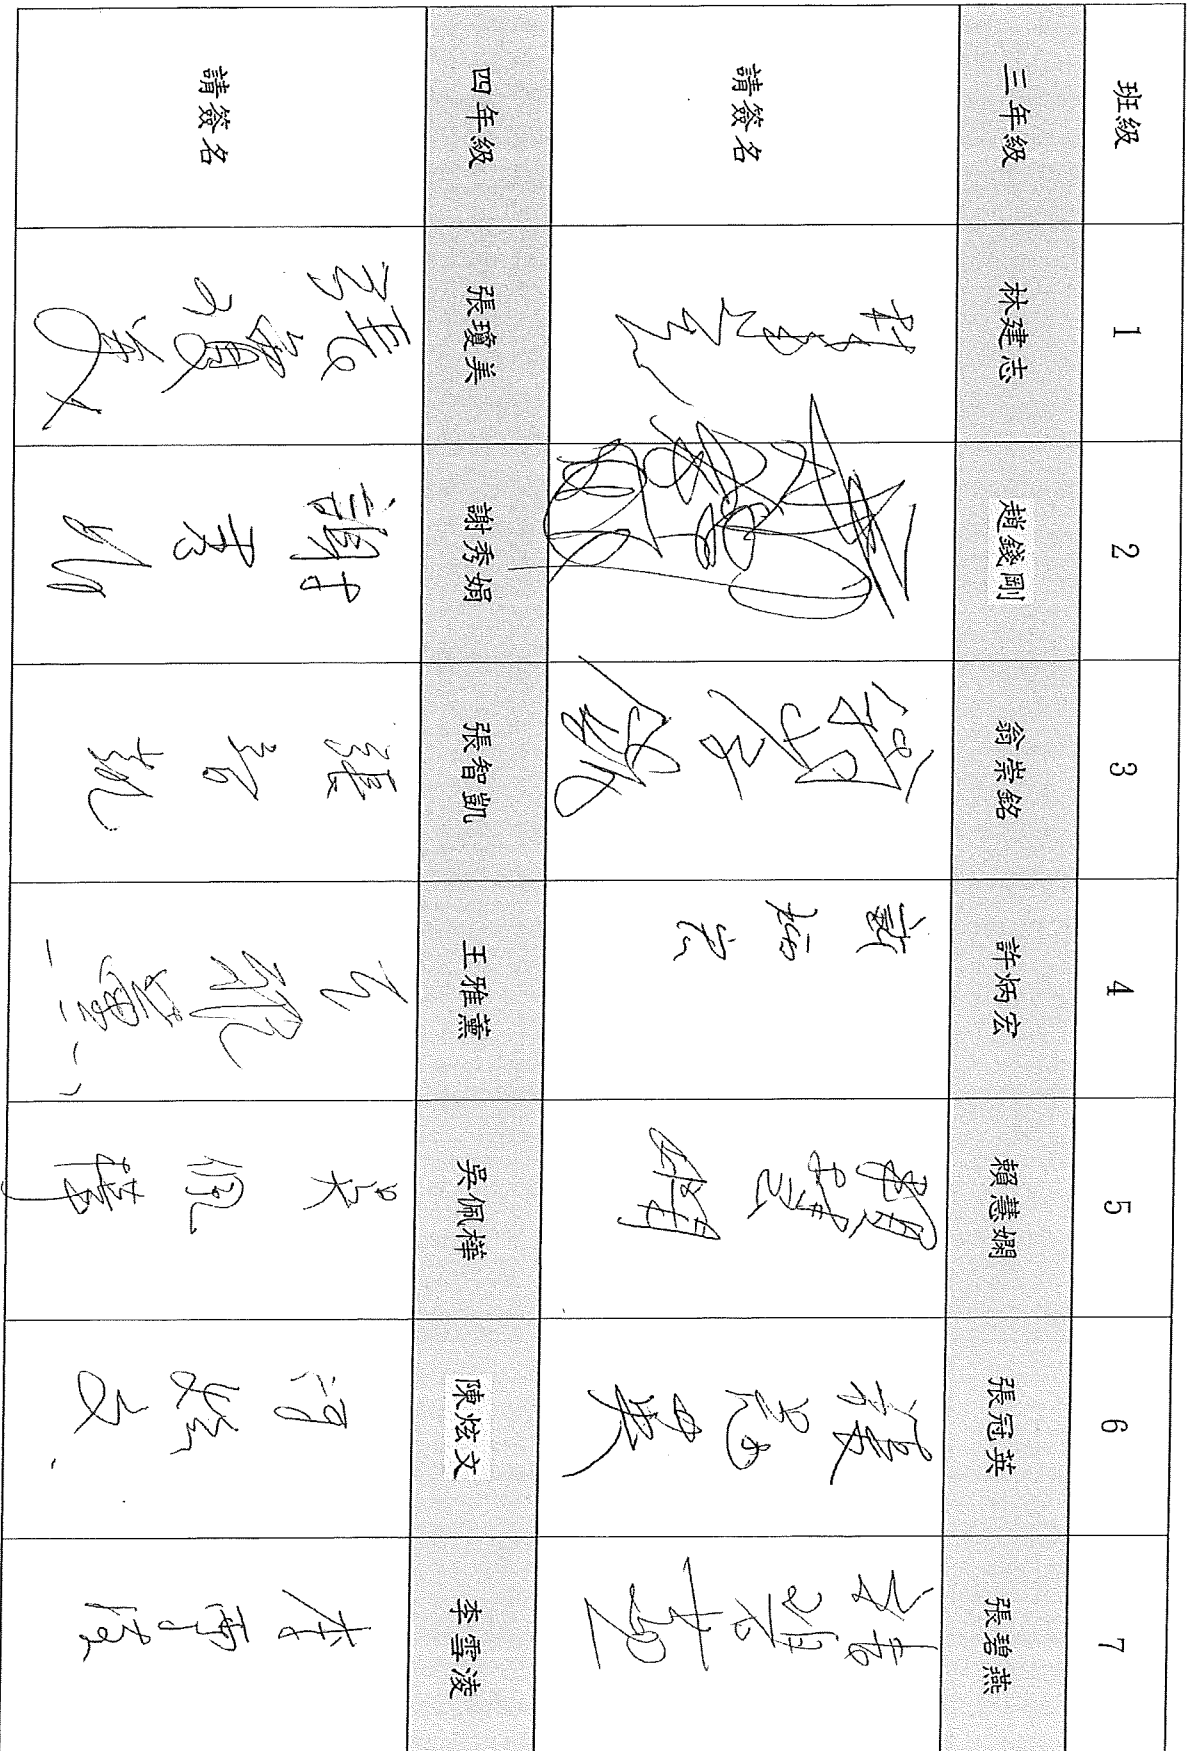 班級 1 2 3 4 5 6 7
三年級 林建志 趙錢剛 翁崇銘 許炳宏 賴慧嫻 張冠英 張碧燕
請簽名 許炳宏 賴慧嫻 張冠英
四年級 張瓊美 謝秀娟 張智凱 王雅薰 吳佩樺 陳炫文 李雪淩
請簽名 張瓊美 謝秀娟 張智凱 王雅薰 吳佩樺 陳炫文 李雪淩